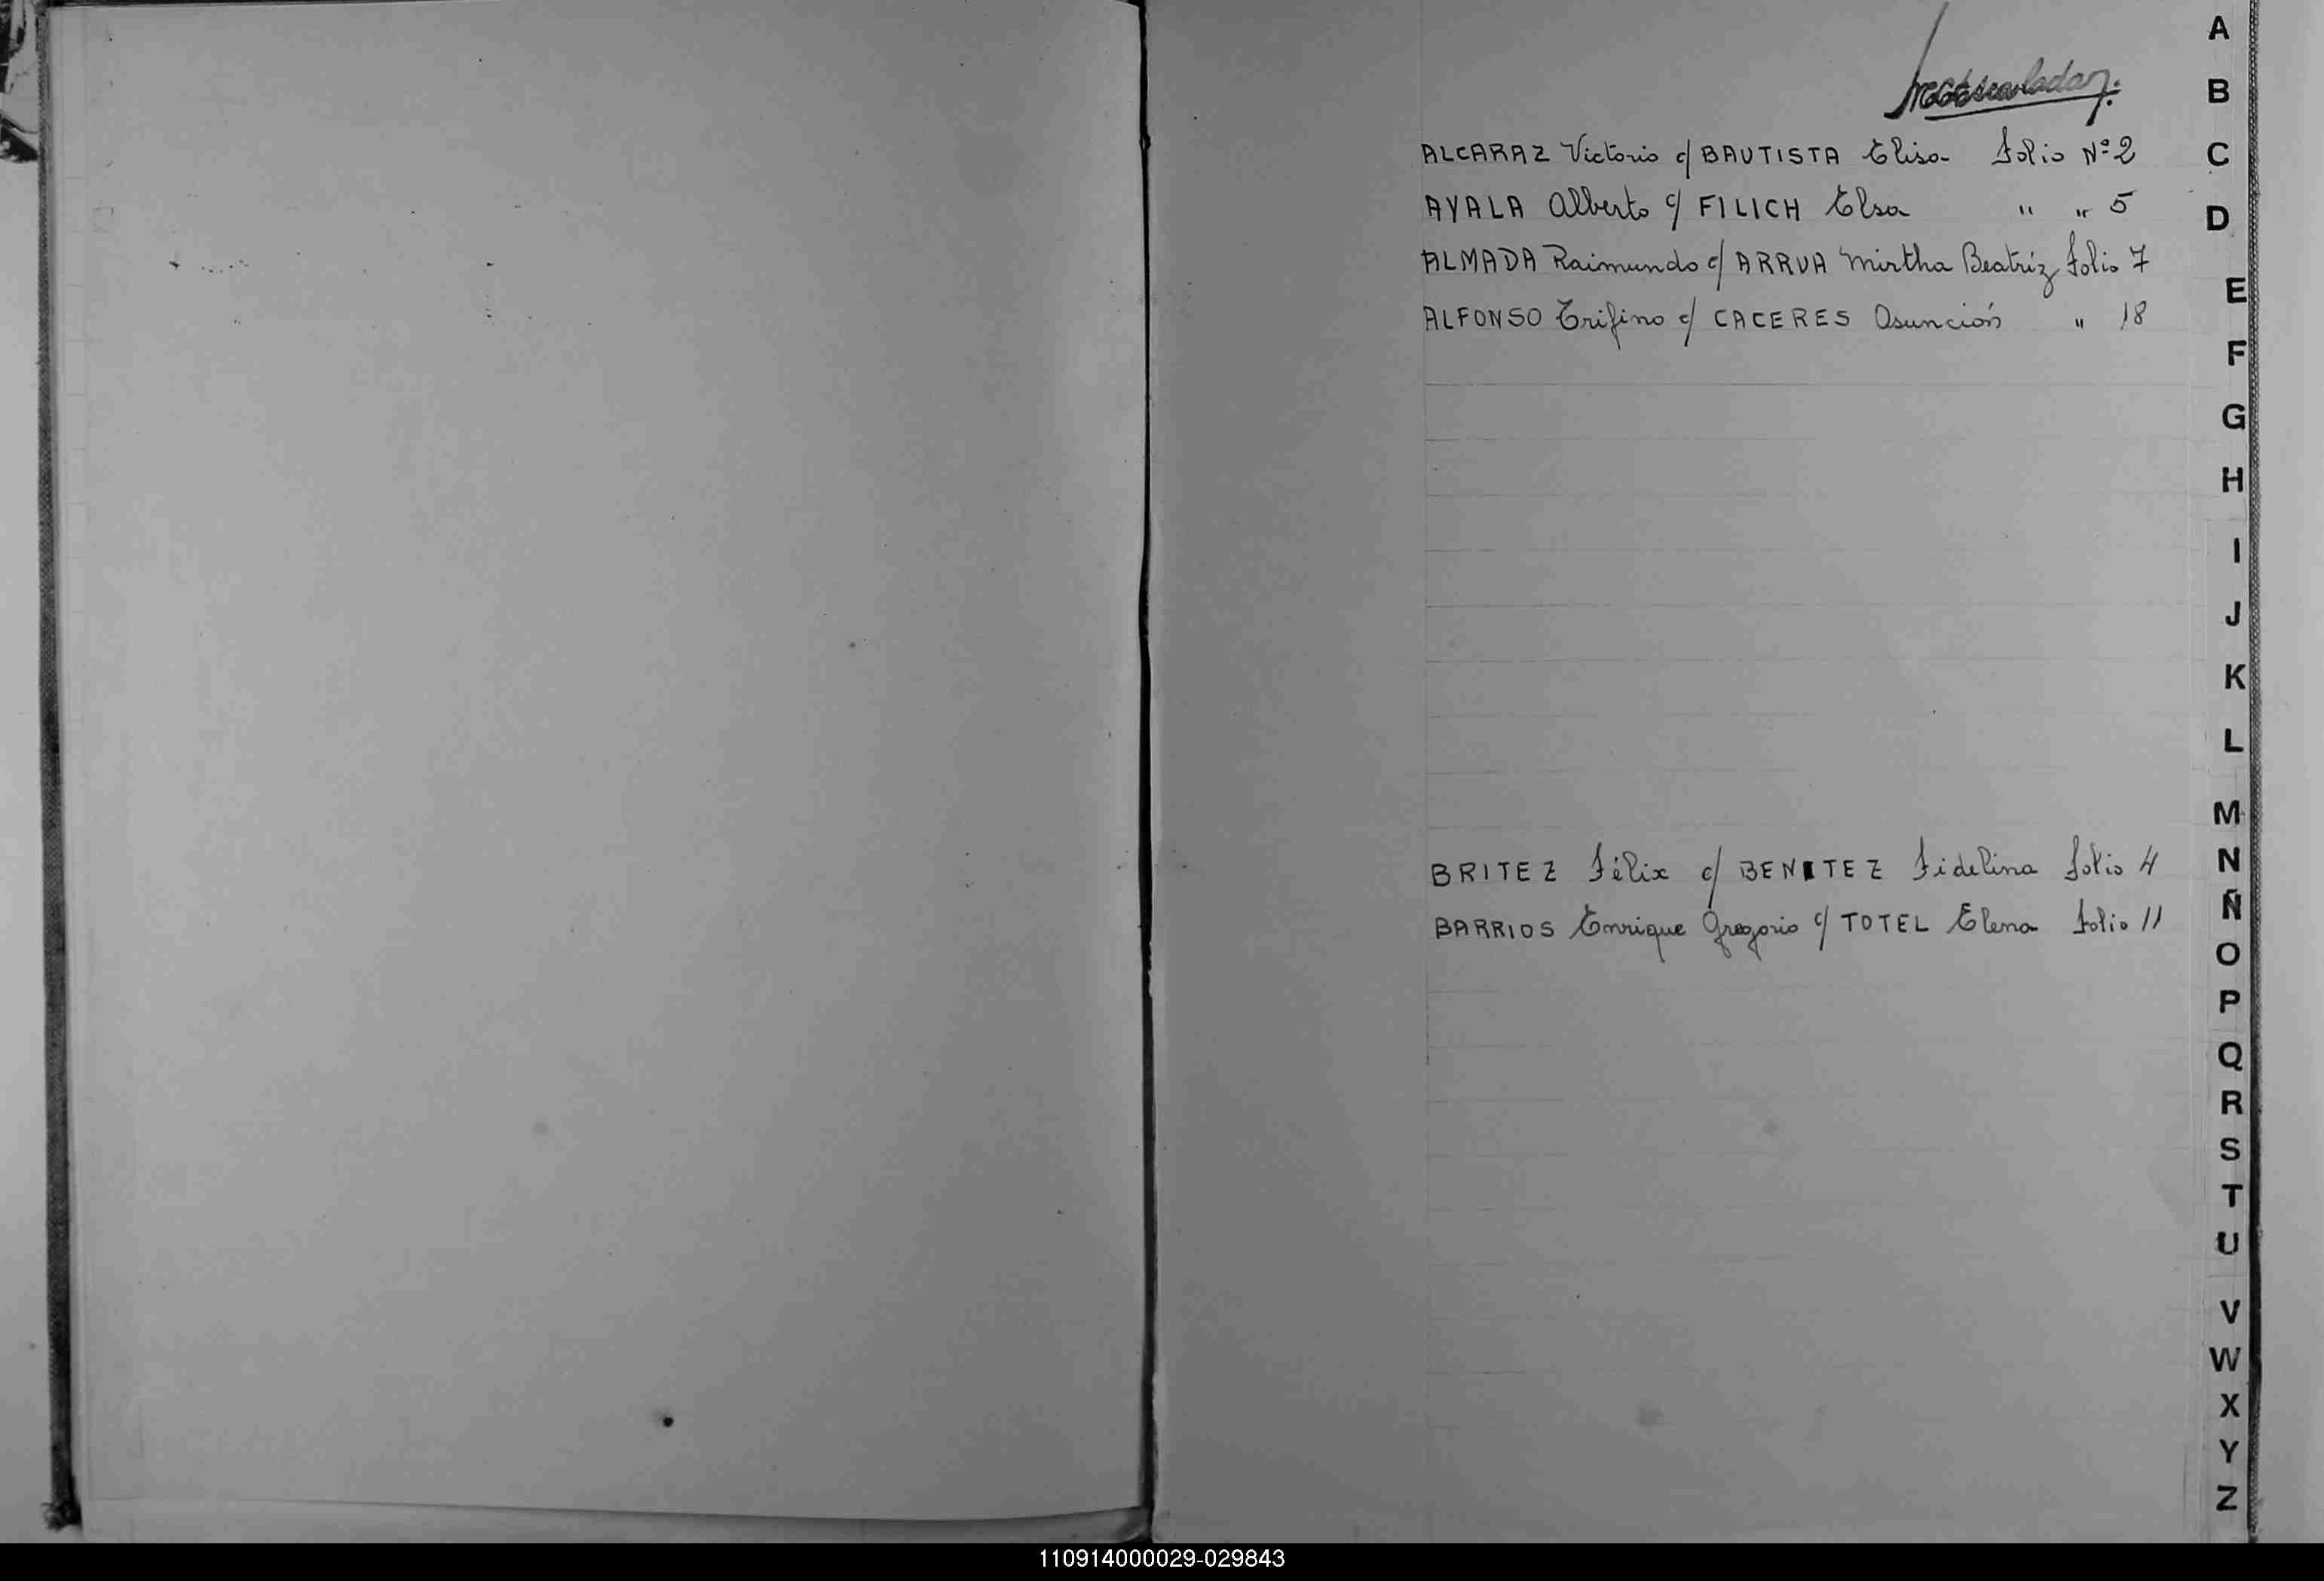 A
B
ALCARAZ Victorio c/ BAUTISTA Elisa Folio Nº 2
C
AYALA Alberto c/ FILICH Elsa " " 5
D
ALMADA Raimundo c/ ARRUA Mirtha Beatríz folio 7
E
ALFONSO Trifino c/ CACERES Asunción " 18
F
G
H
I
J
K
L
M
BRITEZ Félix c/ BENITEZ Fidelina folio 4
N
Ñ
BARRIOS Enrique Gregorio c/ TOTEL Elena folio 11
O
P
Q
R
S
T
U
V
W
X
Y
Z
110914000029-029843